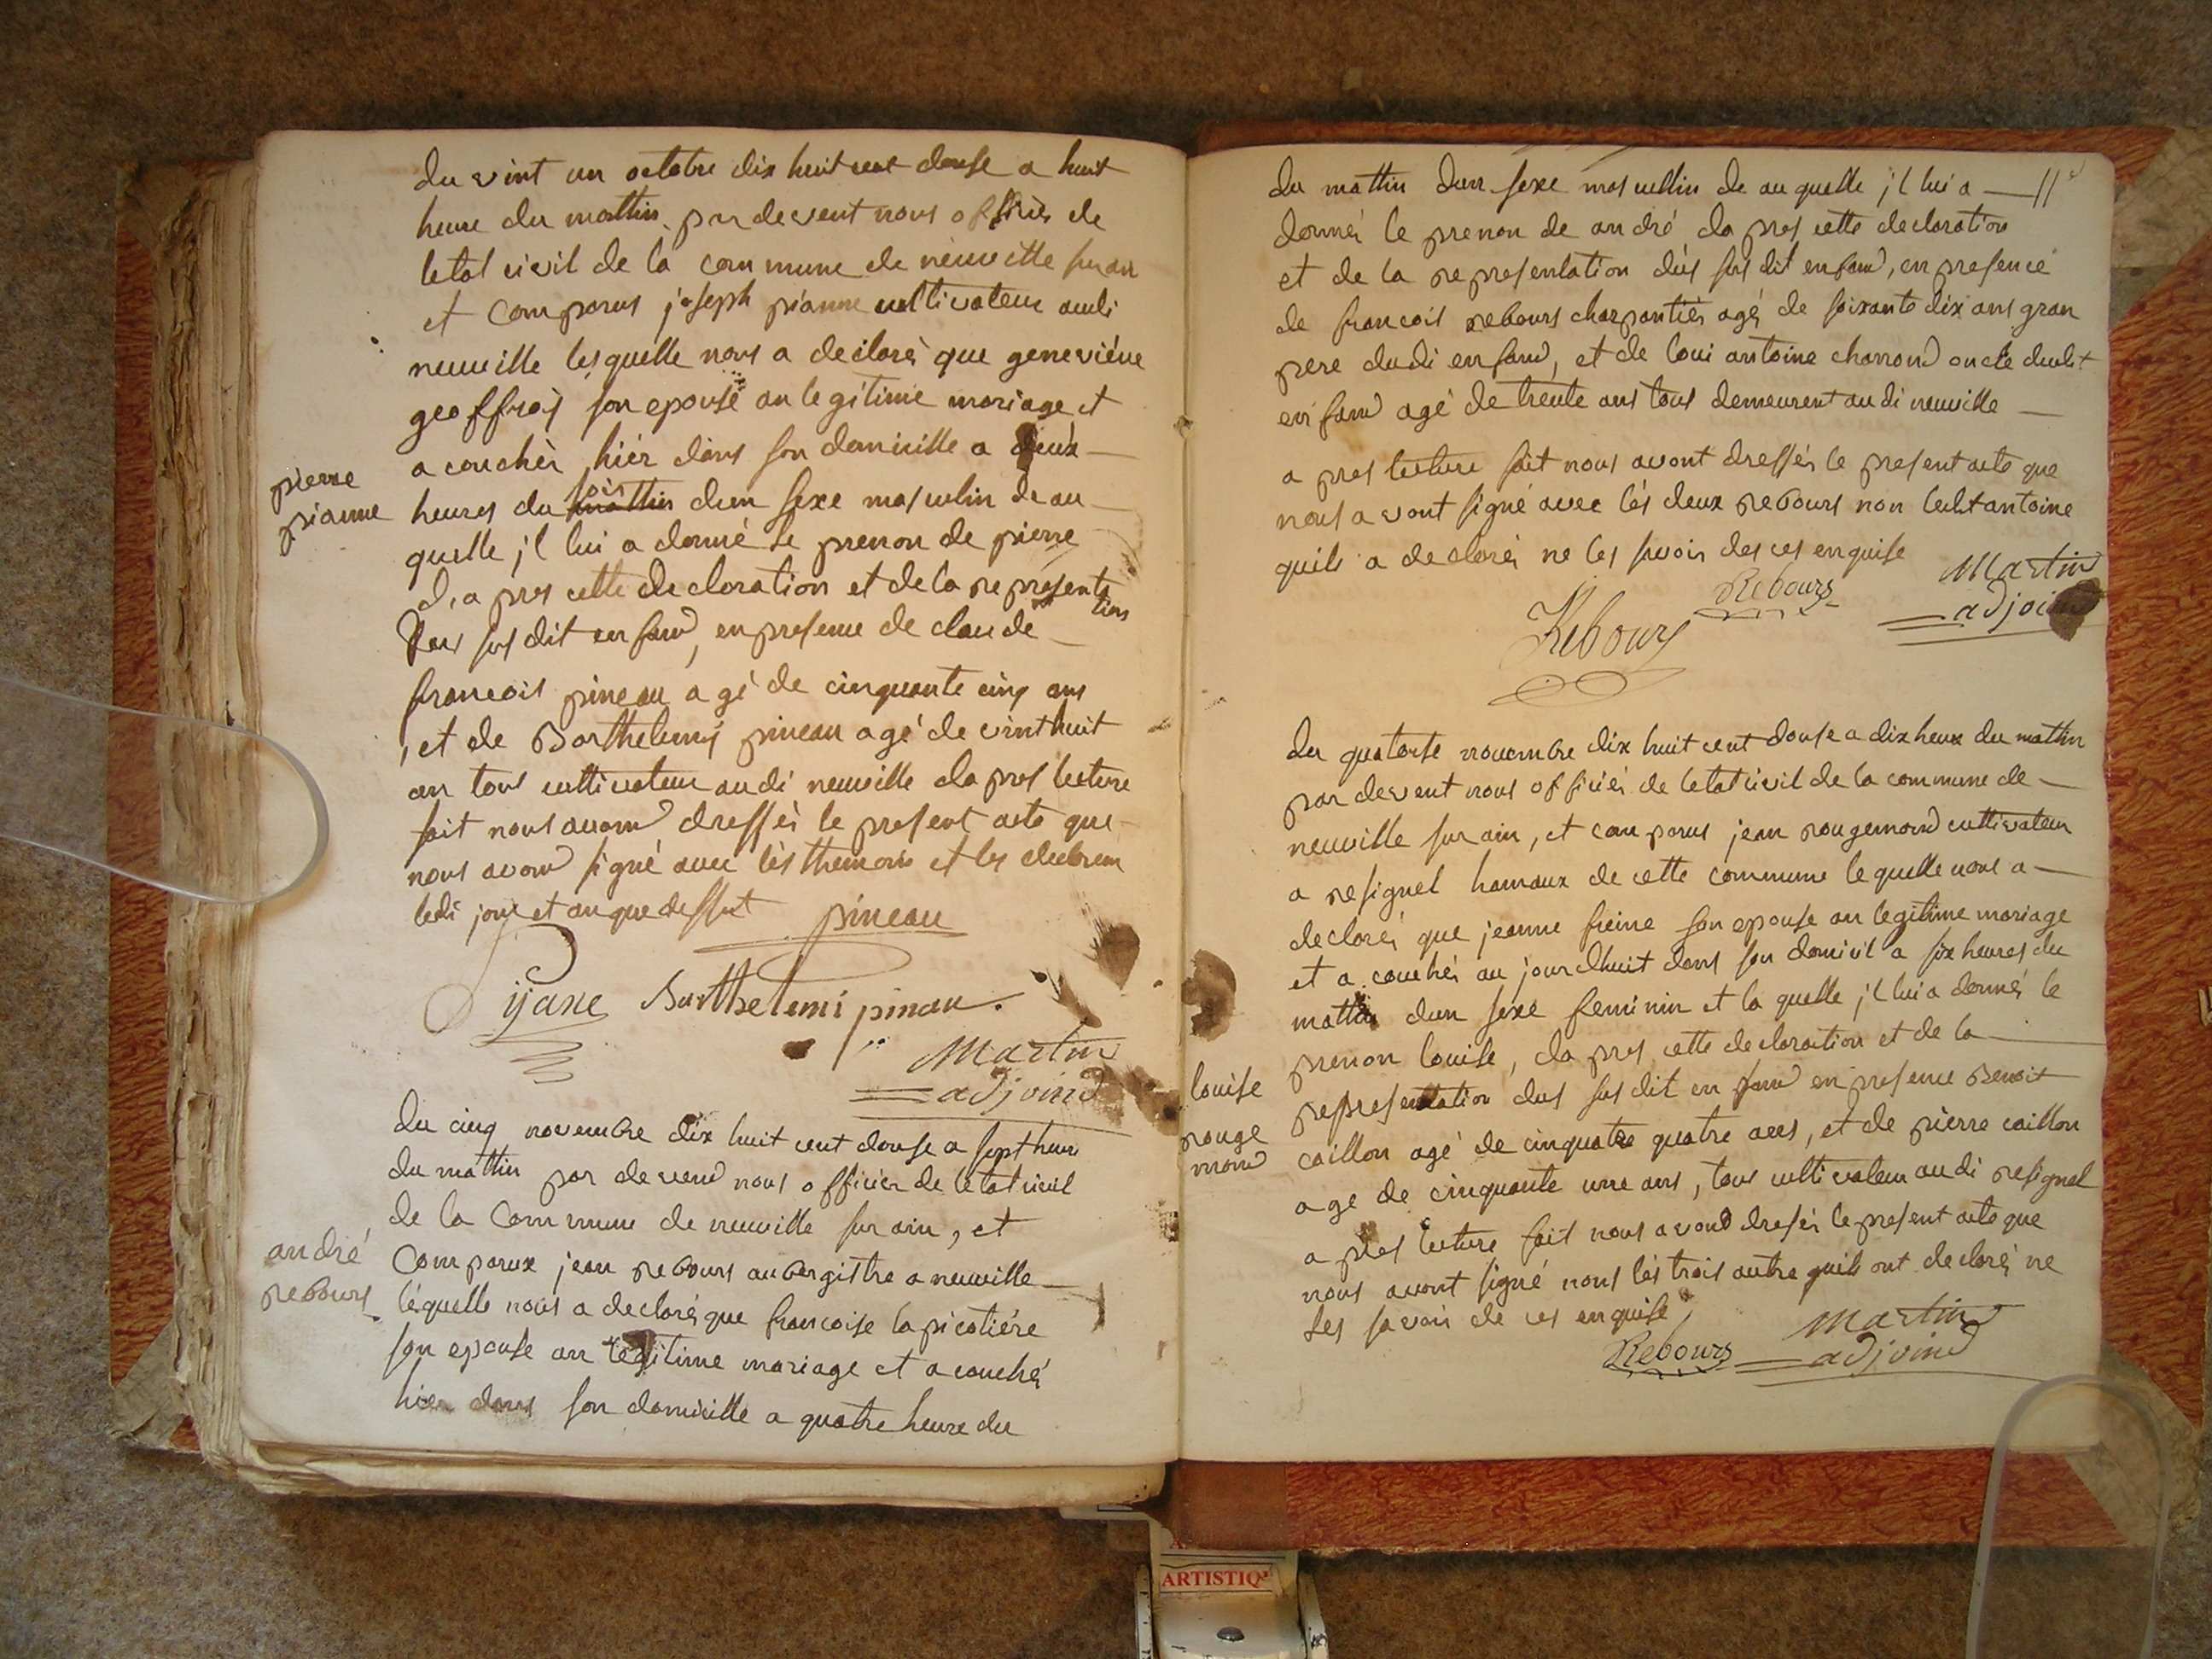 du vint un octobre dix huit cent douse a huit
heure du mattin par devent nous officiér de
letat civil de la commune de neuville sur ain
et comparus joseph pianne cultivateur audi
neuville lesquelle nous a declaré que geneviéve
geoffray son epouse an legitime mariage et
a couchèr hiér dans son domicille a deux
pierre
pianne
heures du mattin soir dun sexe masculin de au
quelle jl lui a donné le prenon de pierre
d,a pres cette declaration et de la representa
tion
dus sus dit enfand, en presence de claude
francois pineau agé de cinquante cinq ans
, et de Barthelemy pineau agé de vint huit
an tous cultivateur audi neuville da pres lecture
fait nous avond dressér le present acte que
nous avond signé avec lés themoins et les
ledi jour et an que dessut pineau
Pijane Barthelemi pineau.
Martin
adjoind
du cinq novembre dix huit cent douse a sept heure
du mattin par devend nous officiér de letat civil
de la commune de neuville sur ain, et
andré
rebours
comparux jean rebours aubergistre a neuville
léquelle nous a declaré que francoise la picotiére
son epouse an legitime mariage et a couchér
hier dans son domicille a quatre heure du
du mattin dun sexe masculin de au quelle jl lui a 11
donnér le prenon de andré da pres cette declaration
et de la representation dús sus dit enfand, en presence
de francois rebours charpantiér agé de soixante dix ans gran
pere dudi enfand, et de loui antoine charrond oncle dudit
enfand agé de trente ans tous demeurent au di neuville
a pres lecture fait nous avont dressér le present acte que
nous avont signé avec lés deux rebours non ledit antoine
quils a declarér ne les savoir des ces enquise
Rebours Martin
adjoind
Rebours
du quatorse novembre dix huit cent douse a dix heux du mattin
par devent nous officiér de letat civil de la commune de
neuville sur ain, et comparus jean rougemond cultivateur
a resignel hamaux de cette commune le quelle nous a
declarér que jeanne freine son epouse an legitime mariage
et a couchér au jourdhuit dans son domicil a six heures du
mattin dun sexe feminin et la quelle jl lui a donnér le
prenon louise, da pres cette declaration et de la
louise
rouge
mond
representation dus sus dit enfand en presence Benoit
caillon agé de cinquatre quatre ans, et de pierre caillon
age de cinquante une ans, tous cultivateur au di resignel
a pres lecture fait nous avond dresér le present acte que
nous avont signé nons lés trois autre quils ont declaré ne
les savoir de ces enquise
Rebours Martin
adjoind
ARTISTIQ